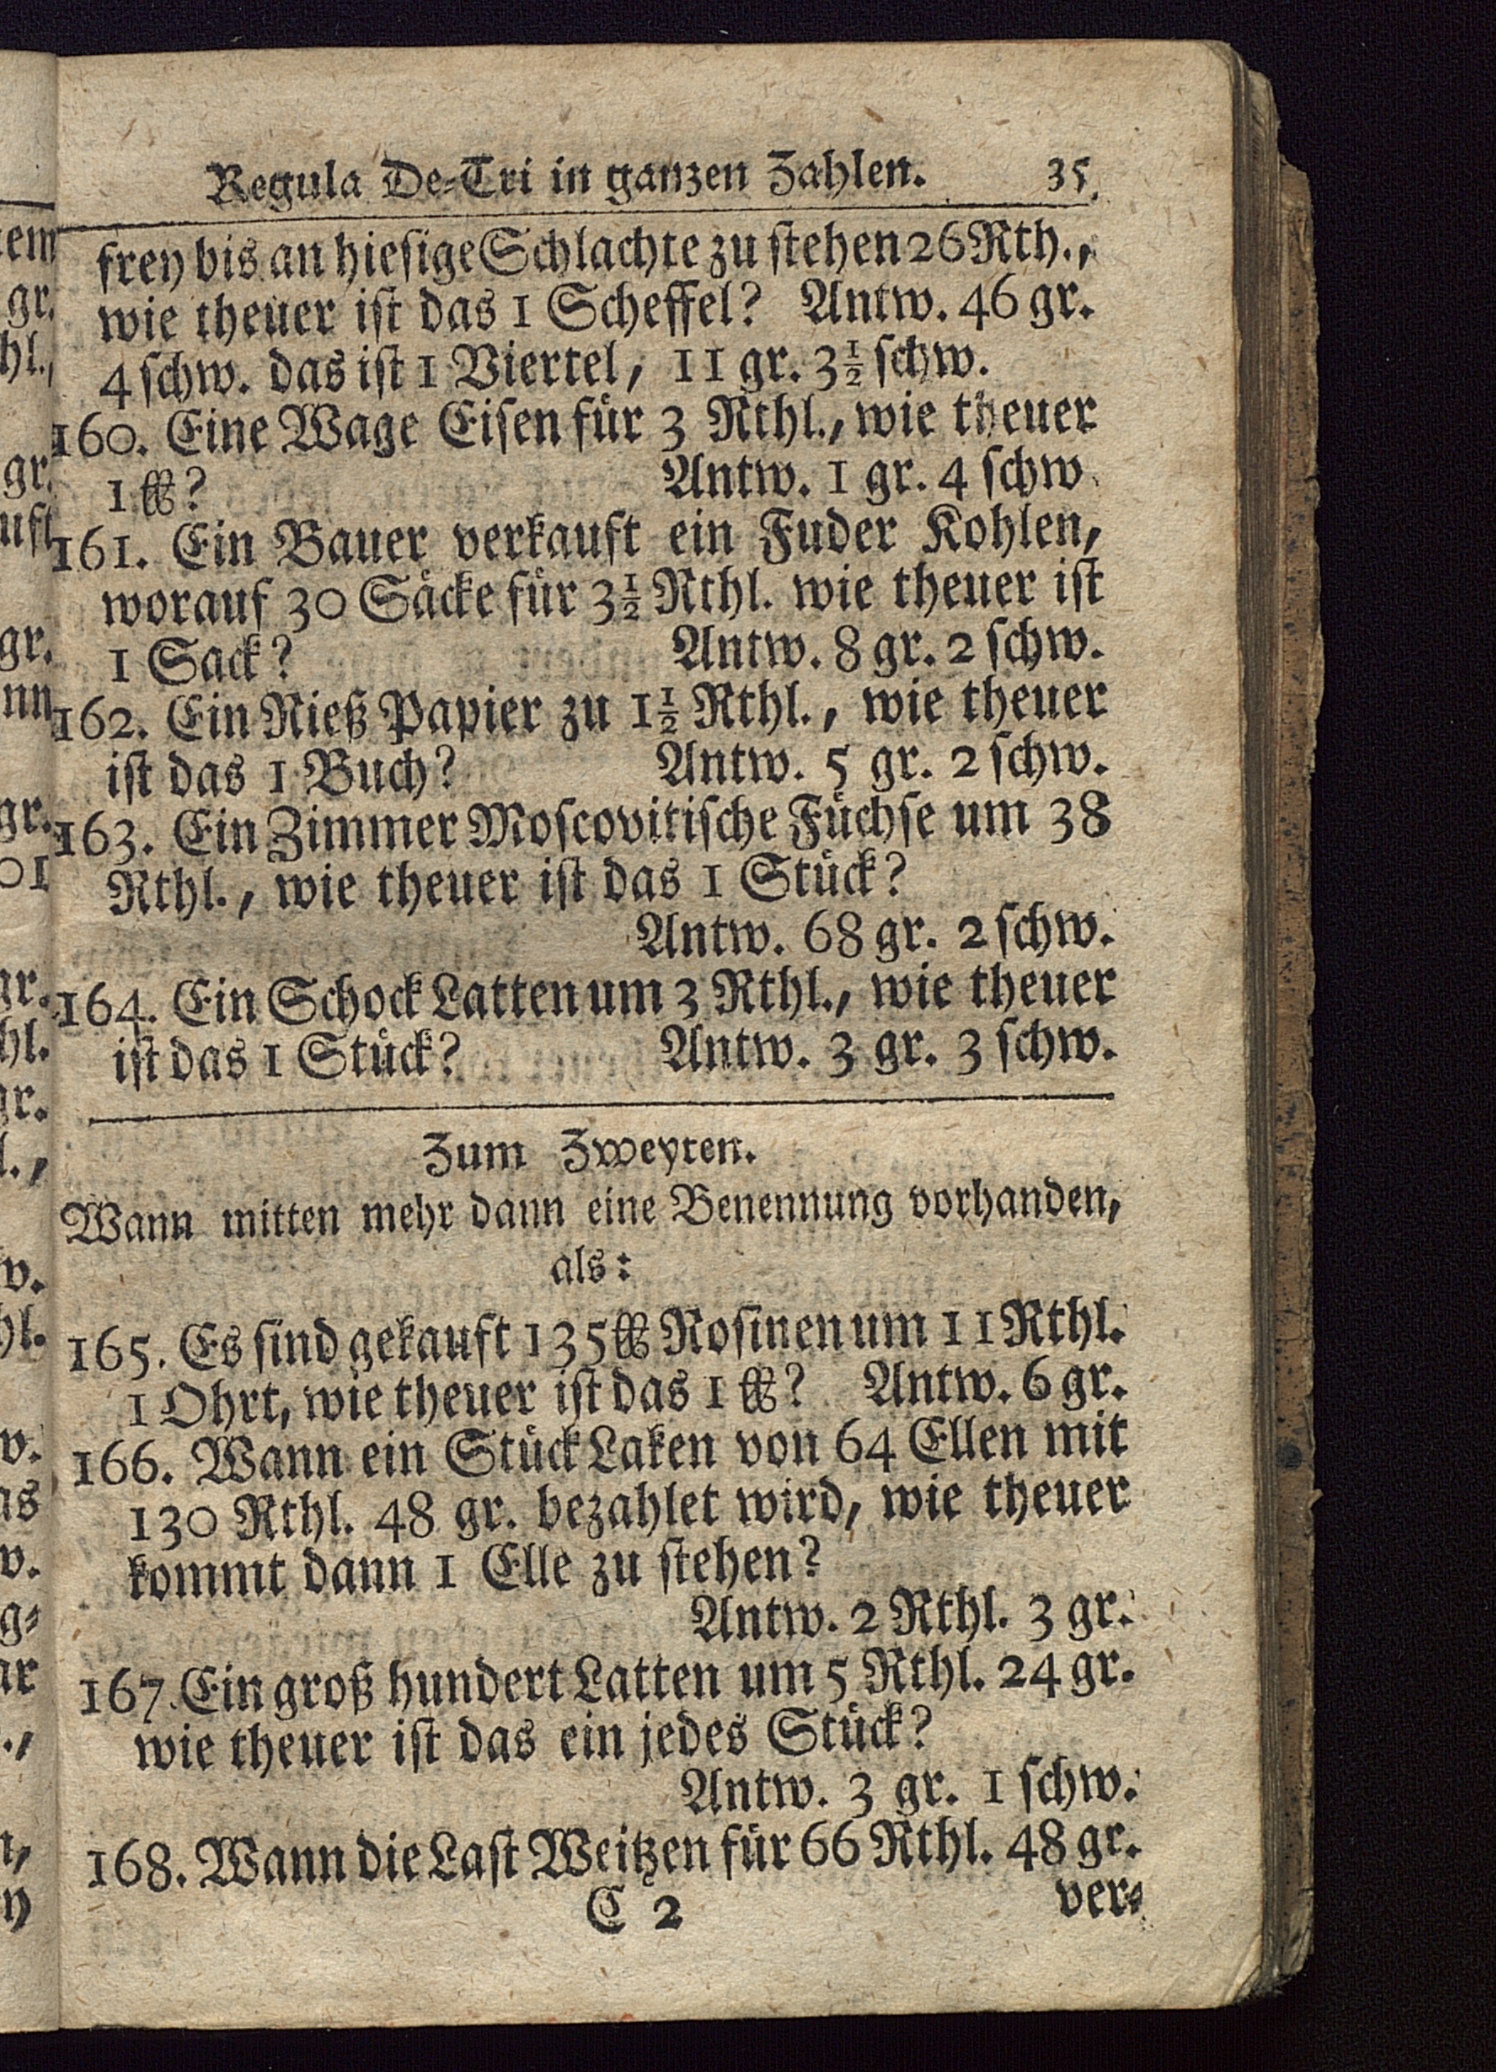 Regula De-Tri in ganzen Zahlen. 35.
frey bis an hiesige Schlachte zu stehen 26 Rth.,
wie theuer ist das 1 Scheffel? Antw. 46 gr.
4 schw. das ist 1 Viertel, 11 gr. 3½ schw.
160. Eine Wage Eisen für 3 Rthl., wie theuer
1 ℔? Antw. 1 gr. 4 schw.
161. Ein Bauer verkauft ein Fuder Kohlen,
worauf 30 Säcke für 3½ Rthl. wie theuer ist
1 Sack? Antw. 8 gr. 2 schw.
162. Ein Rieß Papier zu 1½ Rthl., wie theuer
ist das 1 Buch? Antw. 5 gr. 2 schw.
163. Ein Zimmer Moscovitische Füchse um 38
Rthl., wie theuer ist das 1 Stück?
Antw. 68 gr. 2 schw.
164. Ein Schock Latten um 3 Rthl., wie theuer
ist das 1 Stück? Antw. 3 gr. 3 schw.
Zum Zweyten.
Wann mitten mehr dann eine Benennung vorhanden,
als:
165. Es sind gekauft 135 ℔ Rosinen um 11 Rthl.
1 Ohrt, wie theuer ist das 1 ℔? Antw. 6 gr.
166. Wann ein Stück Laken von 64 Ellen mit
130 Rthl. 48 gr. bezahlet wird, wie theuer
kommt dann 1 Elle zu stehen?
Antw. 2 Rthl. 3 gr.
167. Ein groß hundert Latten um 5 Rthl. 24 gr.
wie theuer ist das ein jedes Stück?
Antw. 3 gr. 1 schw.
168. Wann die Last Weitzen für 66 Rthl. 48 gr.
C 2 ver-